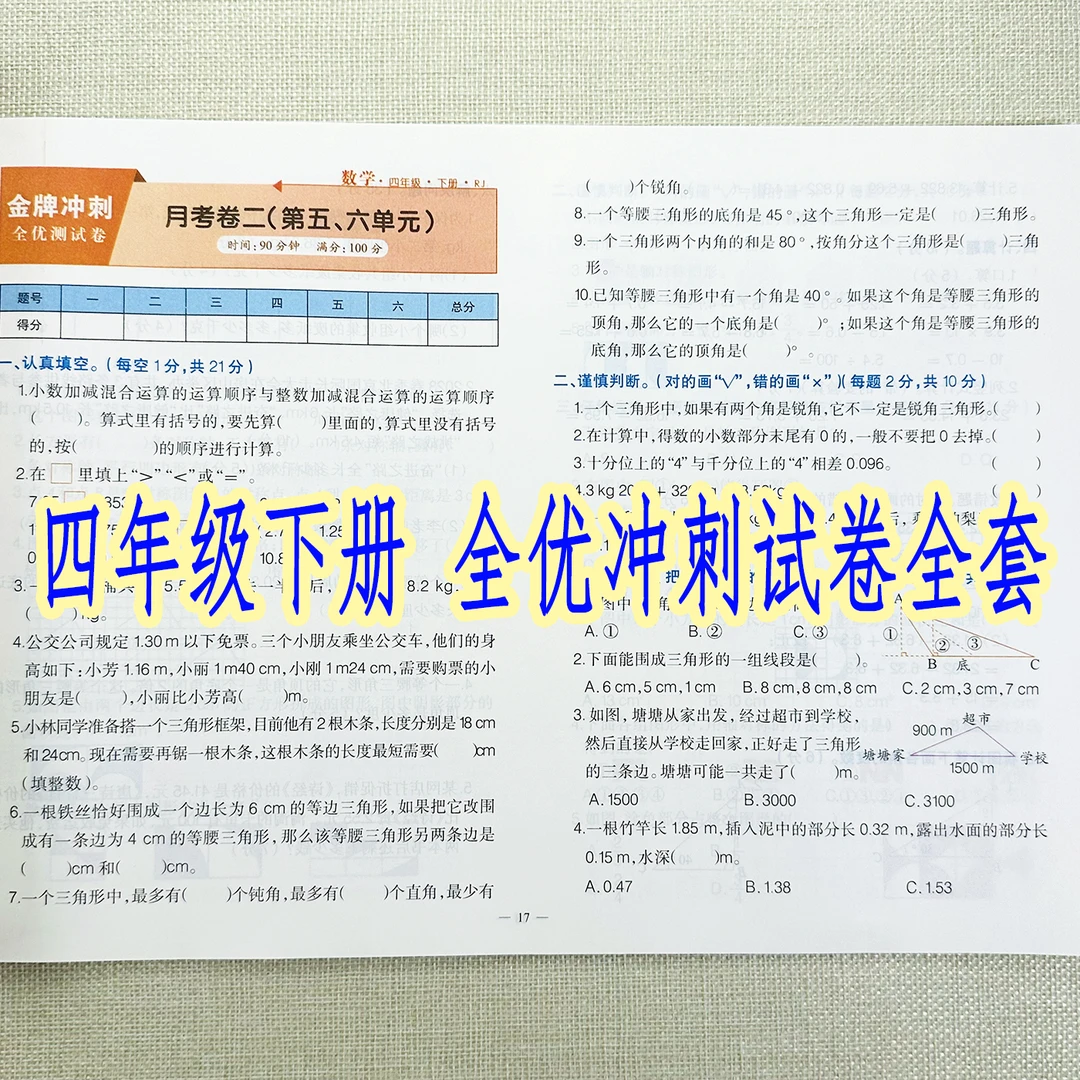 数学·四年级·下册·RJ
金牌冲刺
全优测试卷
月考卷二(第五、六单元)
时间:90分钟 满分:100分
题号 一 二 三 四 五 六 总分
得分
一、认真填空。(每空1分,共21分)
1.小数加减混合运算的运算顺序与整数加减混合运算的运算顺序
( )。算式里有括号的,要先算( )里面的,算式里没有括号
的,按( )的顺序进行计算。
2.在□里填上“>”“<”或“=”。
3.一
8.2 kg.
( )kg。
4.公交公司规定 1.30 m 以下免票。三个小朋友乘坐公交车,他们的身
高如下:小芳 1.16 m,小丽 1 m40 cm,小刚 1 m24 cm,需要购票的小
朋友是( ),小丽比小芳高( )m。
5.小林同学准备搭一个三角形框架,目前他有2根木条,长度分别是18 cm
和24cm。现在需要再锯一根木条,这根木条的长度最短需要( )cm
(填整数)。
6.一根铁丝恰好围成一个边长为 6 cm 的等边三角形,如果把它改围
成有一条边为 4 cm 的等腰三角形,那么该等腰三角形另两条边是
( )cm 和( )cm。
7.一个三角形中,最多有( )个钝角,最多有( )个直角,最少有
( )个锐角。
8.一个等腰三角形的底角是 45°,这个三角形一定是( )三角形。
9.一个三角形两个内角的和是 80°,按角分这个三角形是( )三角
形。
10.已知等腰三角形中有一个角是 40°。如果这个角是等腰三角形的
顶角,那么它的一个底角是( )°;如果这个角是等腰三角形的
底角,那么它的顶角是( )°。
二、谨慎判断。(对的画“√”,错的画“×”)(每题2分,共10分)
1.一个三角形中,如果有两个角是锐角,它不一定是锐角三角形。( )
2.在计算中,得数的小数部分末尾有0的,一般不要把0去掉。( )
3.十分位上的“4”与千分位上的“4”相差 0.096。 ( )
四年级下册 全优冲刺试卷全套
A.① B.② C.③
① ② ③
B 底 C
2.下面能围成三角形的一组线段是( )。
A.6 cm,5 cm,1 cm B.8 cm,8 cm,8 cm C.2 cm,3 cm,7 cm
3.如图,塘塘从家出发,经过超市到学校,
然后直接从学校走回家,正好走了三角形
的三条边。塘塘可能一共走了( )m。
超市
900 m
塘塘家 学校
1500 m
A.1500 B.3000 C.3100
4.一根竹竿长 1.85 m,插入泥中的部分长 0.32 m,露出水面的部分长
0.15 m,水深( )m。
A.0.47 B.1.38 C.1.53
— 17 —